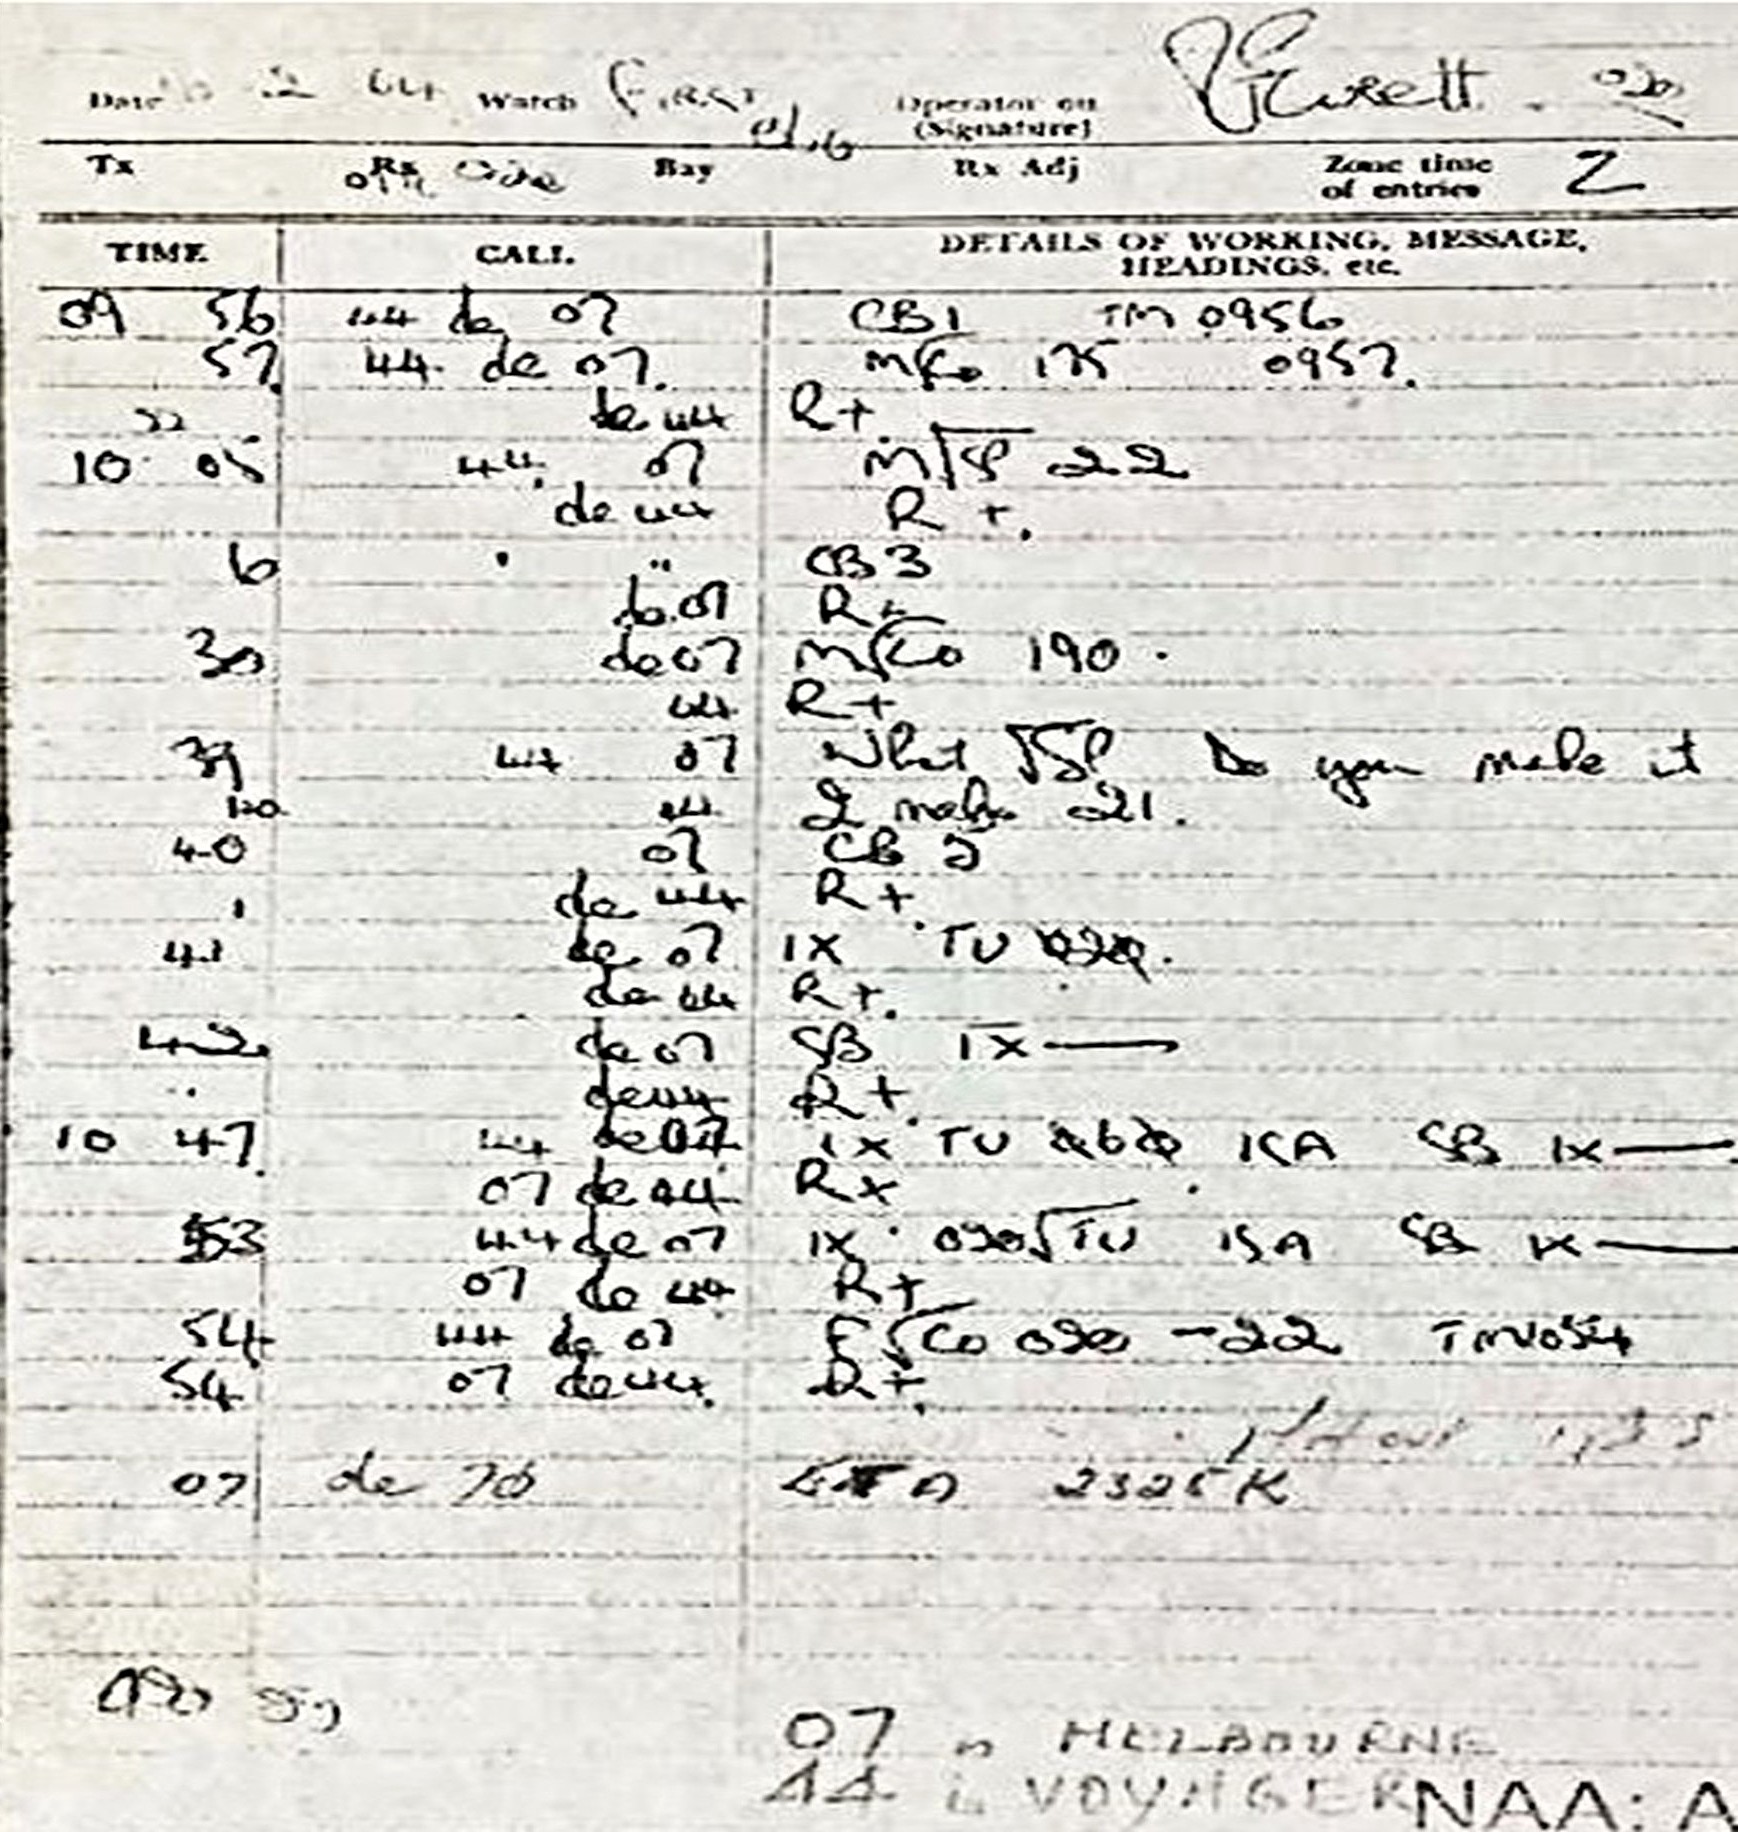 Date 2 64 Watch FIRST Operator on (Signature)
Tx Rx Bay Rx Adj Zone time of entries Z
TIME CALL DETAILS OF WORKING, MESSAGE, HEADINGS, etc.
09 56 44 de 07 CB1 TM 0956
57. 44 de 07. M/Co 175 0957.
de 44 R+
10 05 44 07 M/SP 22
de 44 R +.
6 " " CB 3
de 07 R+
30 de 07 M/Co 190 .
44 R+
39 44 07 What SP Do you make it
44 I make 21.
40 07 CB 5
de 44 R+
41 de 07 IX TU 020.
de 44 R+.
42 de 07 SB IX —
de 44 R+
10 47. 44 de 07 IX TU ISA SB IX —
07 de 44 R
53 44 de 07 IX 020 TU ISA SB IX —
07 de 44 R+
54 44 de 07 F Co 020 - 22 TM1054
54 07 de 44. R+.
07 de 70 ETA 2325K
07 MELBOURNE
44 VOYAGER NAA: A